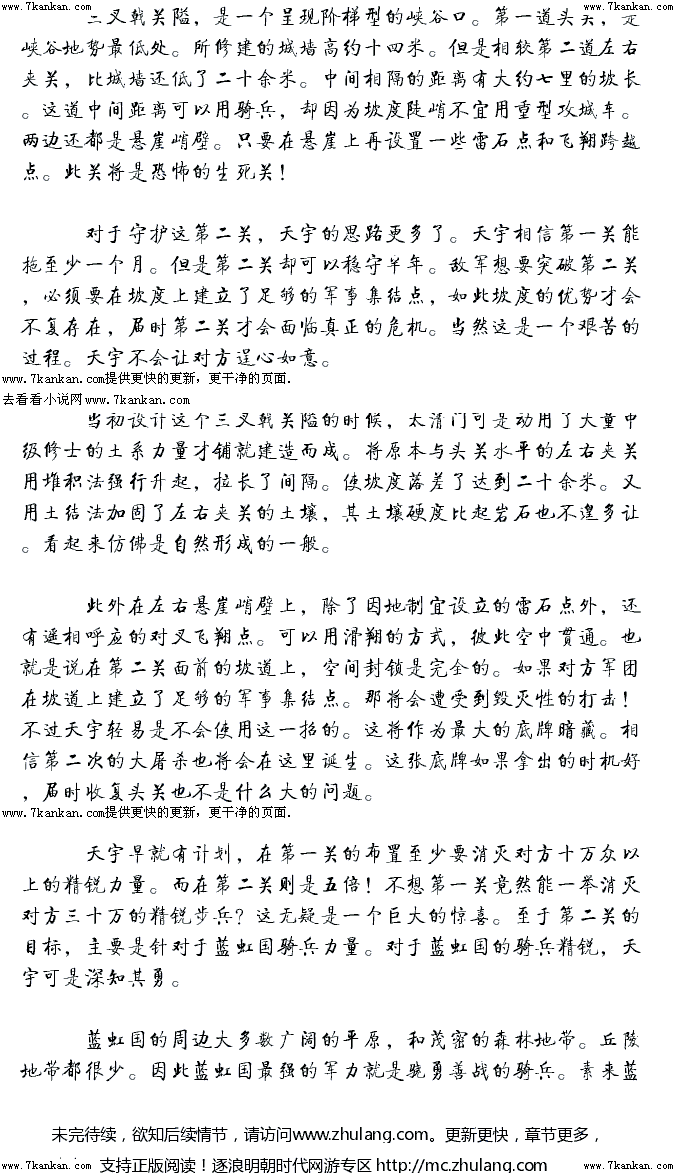 www.7kankan.com www.7kankan.com
三叉戟关隘，是一个呈现阶梯型的峡谷口。第一道头关，是
峡谷地势最低处。所修建的城墙高约十四米。但是相较第二道左右
夹关，比城墙还低了二十余米。中间相隔的距离有大约七里的坡长
。这道中间距离可以用骑兵，却因为坡度陡峭不宜用重型攻城车。
两边还都是悬崖峭壁。只要在悬崖上再设置一些雷石点和飞翔跨越
点。此关将是恐怖的生死关！
对于守护这第二关，天宇的思路更多了。天宇相信第一关能
拖至少一个月。但是第二关却可以稳守半年。敌军想要突破第二关
，必须要在坡度上建立了足够的军事集结点，如此坡度的优势才会
不复存在，届时第二关才会面临真正的危机。当然这是一个艰苦的
过程。天宇不会让对方逞心如意。
www.7kankan.com提供更快的更新，更干净的页面.
去看看小说网www.7kankan.com
当初设计这个三叉戟关隘的时候，太清门可是动用了大量中
级修士的土系力量才铺就建造而成。将原本与头关水平的左右夹关
用堆积法强行升起，拉长了间隔。使坡度落差了达到二十余米。又
用土结法加固了左右夹关的土壤，其土壤硬度比起岩石也不遑多让
。看起来仿佛是自然形成的一般。
此外在左右悬崖峭壁上，除了因地制宜设立的雷石点外，还
有遥相呼应的对叉飞翔点。可以用滑翔的方式，彼此空中贯通。也
就是说在第二关面前的坡道上，空间封锁是完全的。如果对方军团
在坡道上建立了足够的军事集结点。那将会遭受到毁灭性的打击！
不过天宇轻易是不会使用这一招的。这将作为最大的底牌暗藏。相
信第二次的大屠杀也将会在这里诞生。这张底牌如果拿出的时机好
，届时收复头关也不是什么大的问题。
www.7kankan.com提供更快的更新，更干净的页面.
天宇早就有计划，在第一关的布置至少要消灭对方十万众以
上的精锐力量。而在第二关则是五倍！不想第一关竟然能一举消灭
对方三十万的精锐步兵？这无疑是一个巨大的惊喜。至于第二关的
目标，主要是针对于蓝虹国骑兵力量。对于蓝虹国的骑兵精锐，天
宇可是深知其勇。
蓝虹国的周边大多数广阔的平原，和茂密的森林地带。丘陵
地带都很少。因此蓝虹国最强的军力就是骁勇善战的骑兵。素来蓝
未完待续，欲知后续情节，请访问www.zhulang.com。更新更快，章节更多，
www.7kankan.com 支持正版阅读！逐浪明朝时代网游专区 http://mc.zhulang.com www.7kankan.com